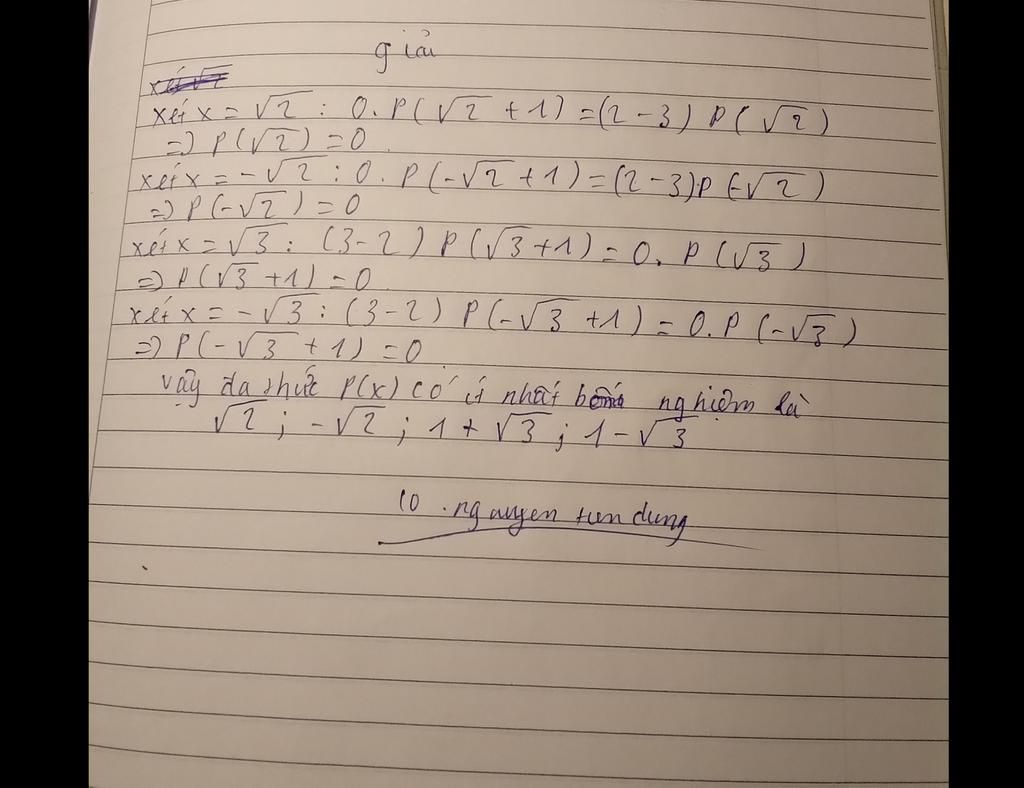 giải
xét x = √2 : 0.P(√2 + 1) = (2 - 3) P(√2)
=) P(√2) = 0
xét x = -√2 : 0. P(-√2 + 1) = (2 - 3)P(-√2)
=) P(-√2) = 0
xét x = √3 : (3 - 2) P(√3 + 1) = 0. P(√3)
=) P(√3 + 1) = 0
xét x = -√3 : (3 - 2) P(-√3 + 1) = 0. P(-√3)
=) P(-√3 + 1) = 0
vậy đa thức P(x) có ít nhất nghiệm là
√2 ; -√2 ; 1 + √3 ; 1 - √3
10 . nguyen dung